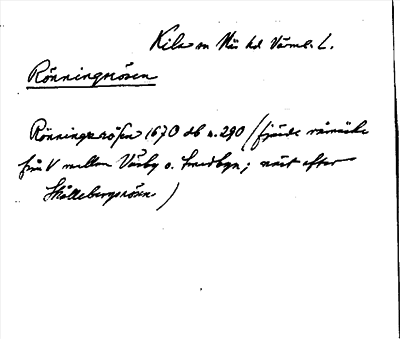 Kila sn Näs hd Värml. L.
Rönningsrösen
Rönningsrösen 1670 db s. 290 (fjärde råmärke
från V mellan Värby o. Smedbyn; näst efter
Skållebergsrösen)